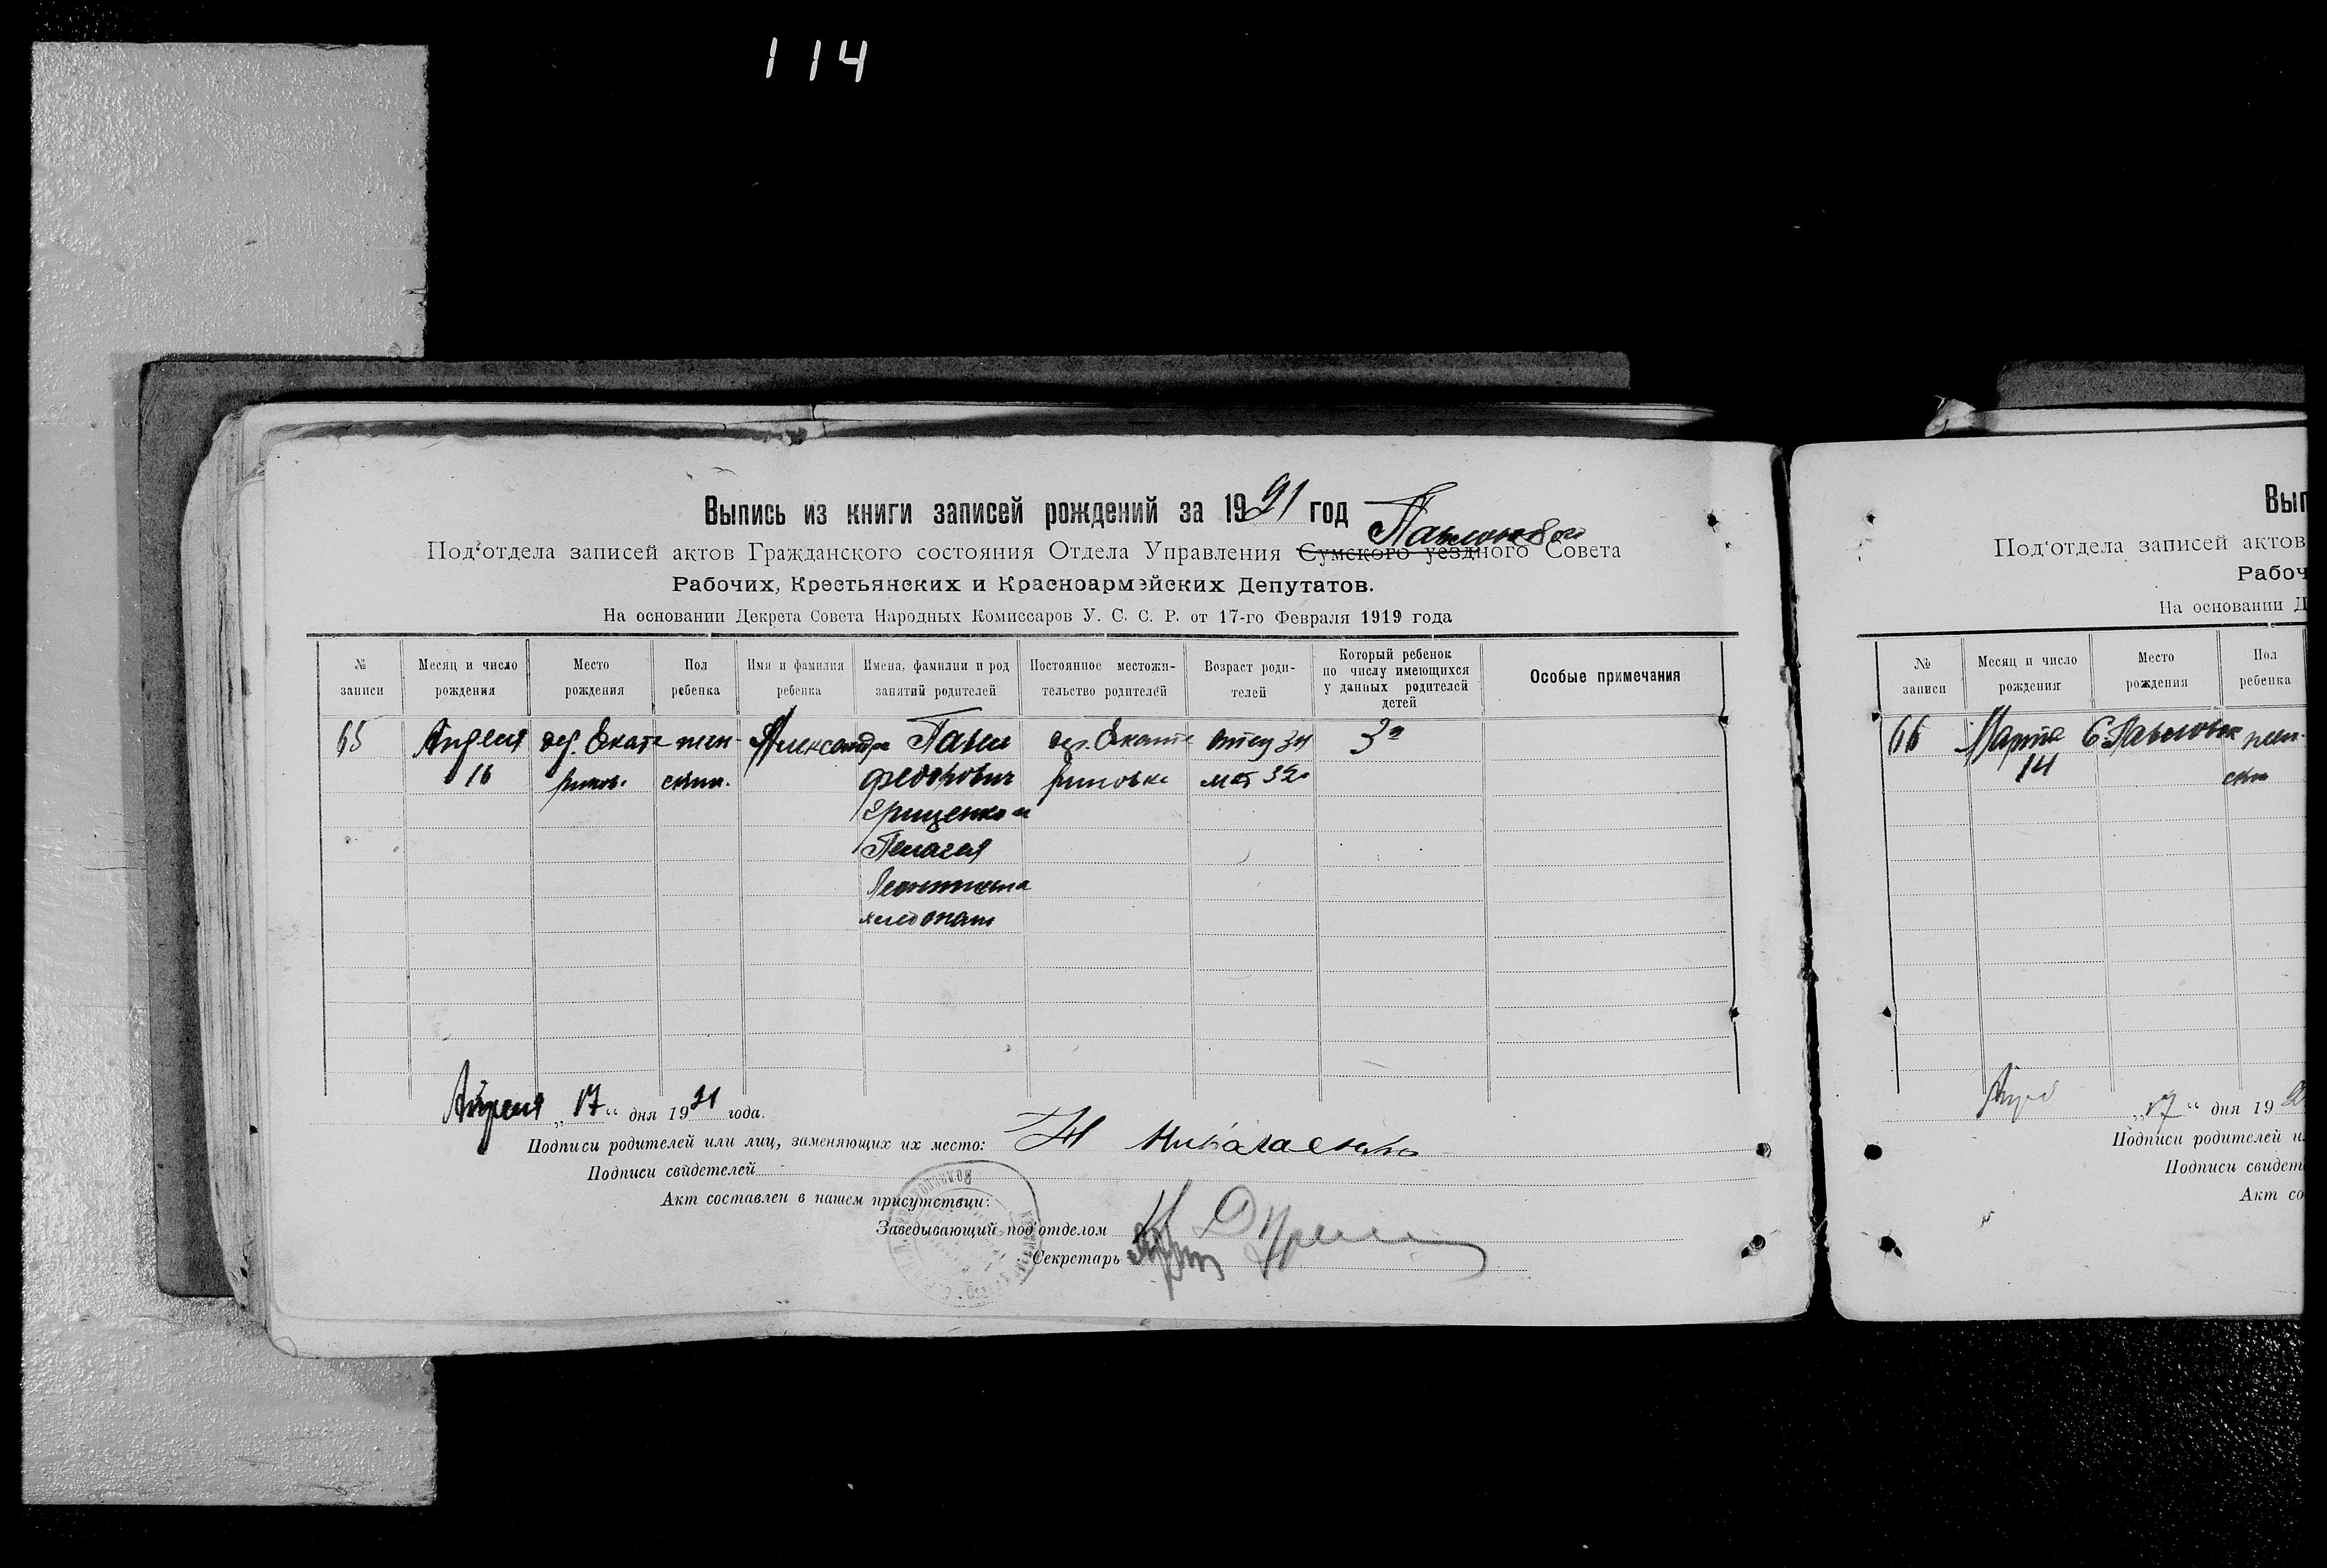 114
Выпись из книги записей рождений за 1921 год
Под'отдела записей актов Гражданского состояния Отдела Управления Сумского уездного Совета
Рабочих, Крестьянских и Красноармэйских Депутатов.
На основании Декрета Совета Народных Комиссаров У. С. С. Р. от 17-го Февраля 1919 года
№ записи
Месяц и число рождения
Место рождения
Пол ребенка
Имя и фамилия ребенка
Имена, фамилии и род занятий родителей
Постоянное местожительство родителей
Возраст родителей
Который ребенок по числу имеющихся у данных родителей детей
Особые примечания
65
Апреля
16
дер. Екате
ринов.
жен-
скии.
Александра
Павел
Федорович
Грищенко и
Пелагея
Леонтиевна
хлебопаш
дер. Екате
риновка
отец 34
мат 32
3й
Апреля „17“ дня 1921 года.
Подписи родителей или лиц, заменяющих их место: Н Николаенко
Подписи свидетелей
Акт составлен в нашем присутствии:
Заведывающий под'отделом
Секретарь
Вып
Под'отдела записей актов
Рабоч
На основании Д
№ записи
Месяц и число рождения
Место рождения
Пол ребенка
66
Марта
14
С. Павловка
жен-
ски
„17“ дня 19
Подписи родителей и
Подписи свидет
Акт со